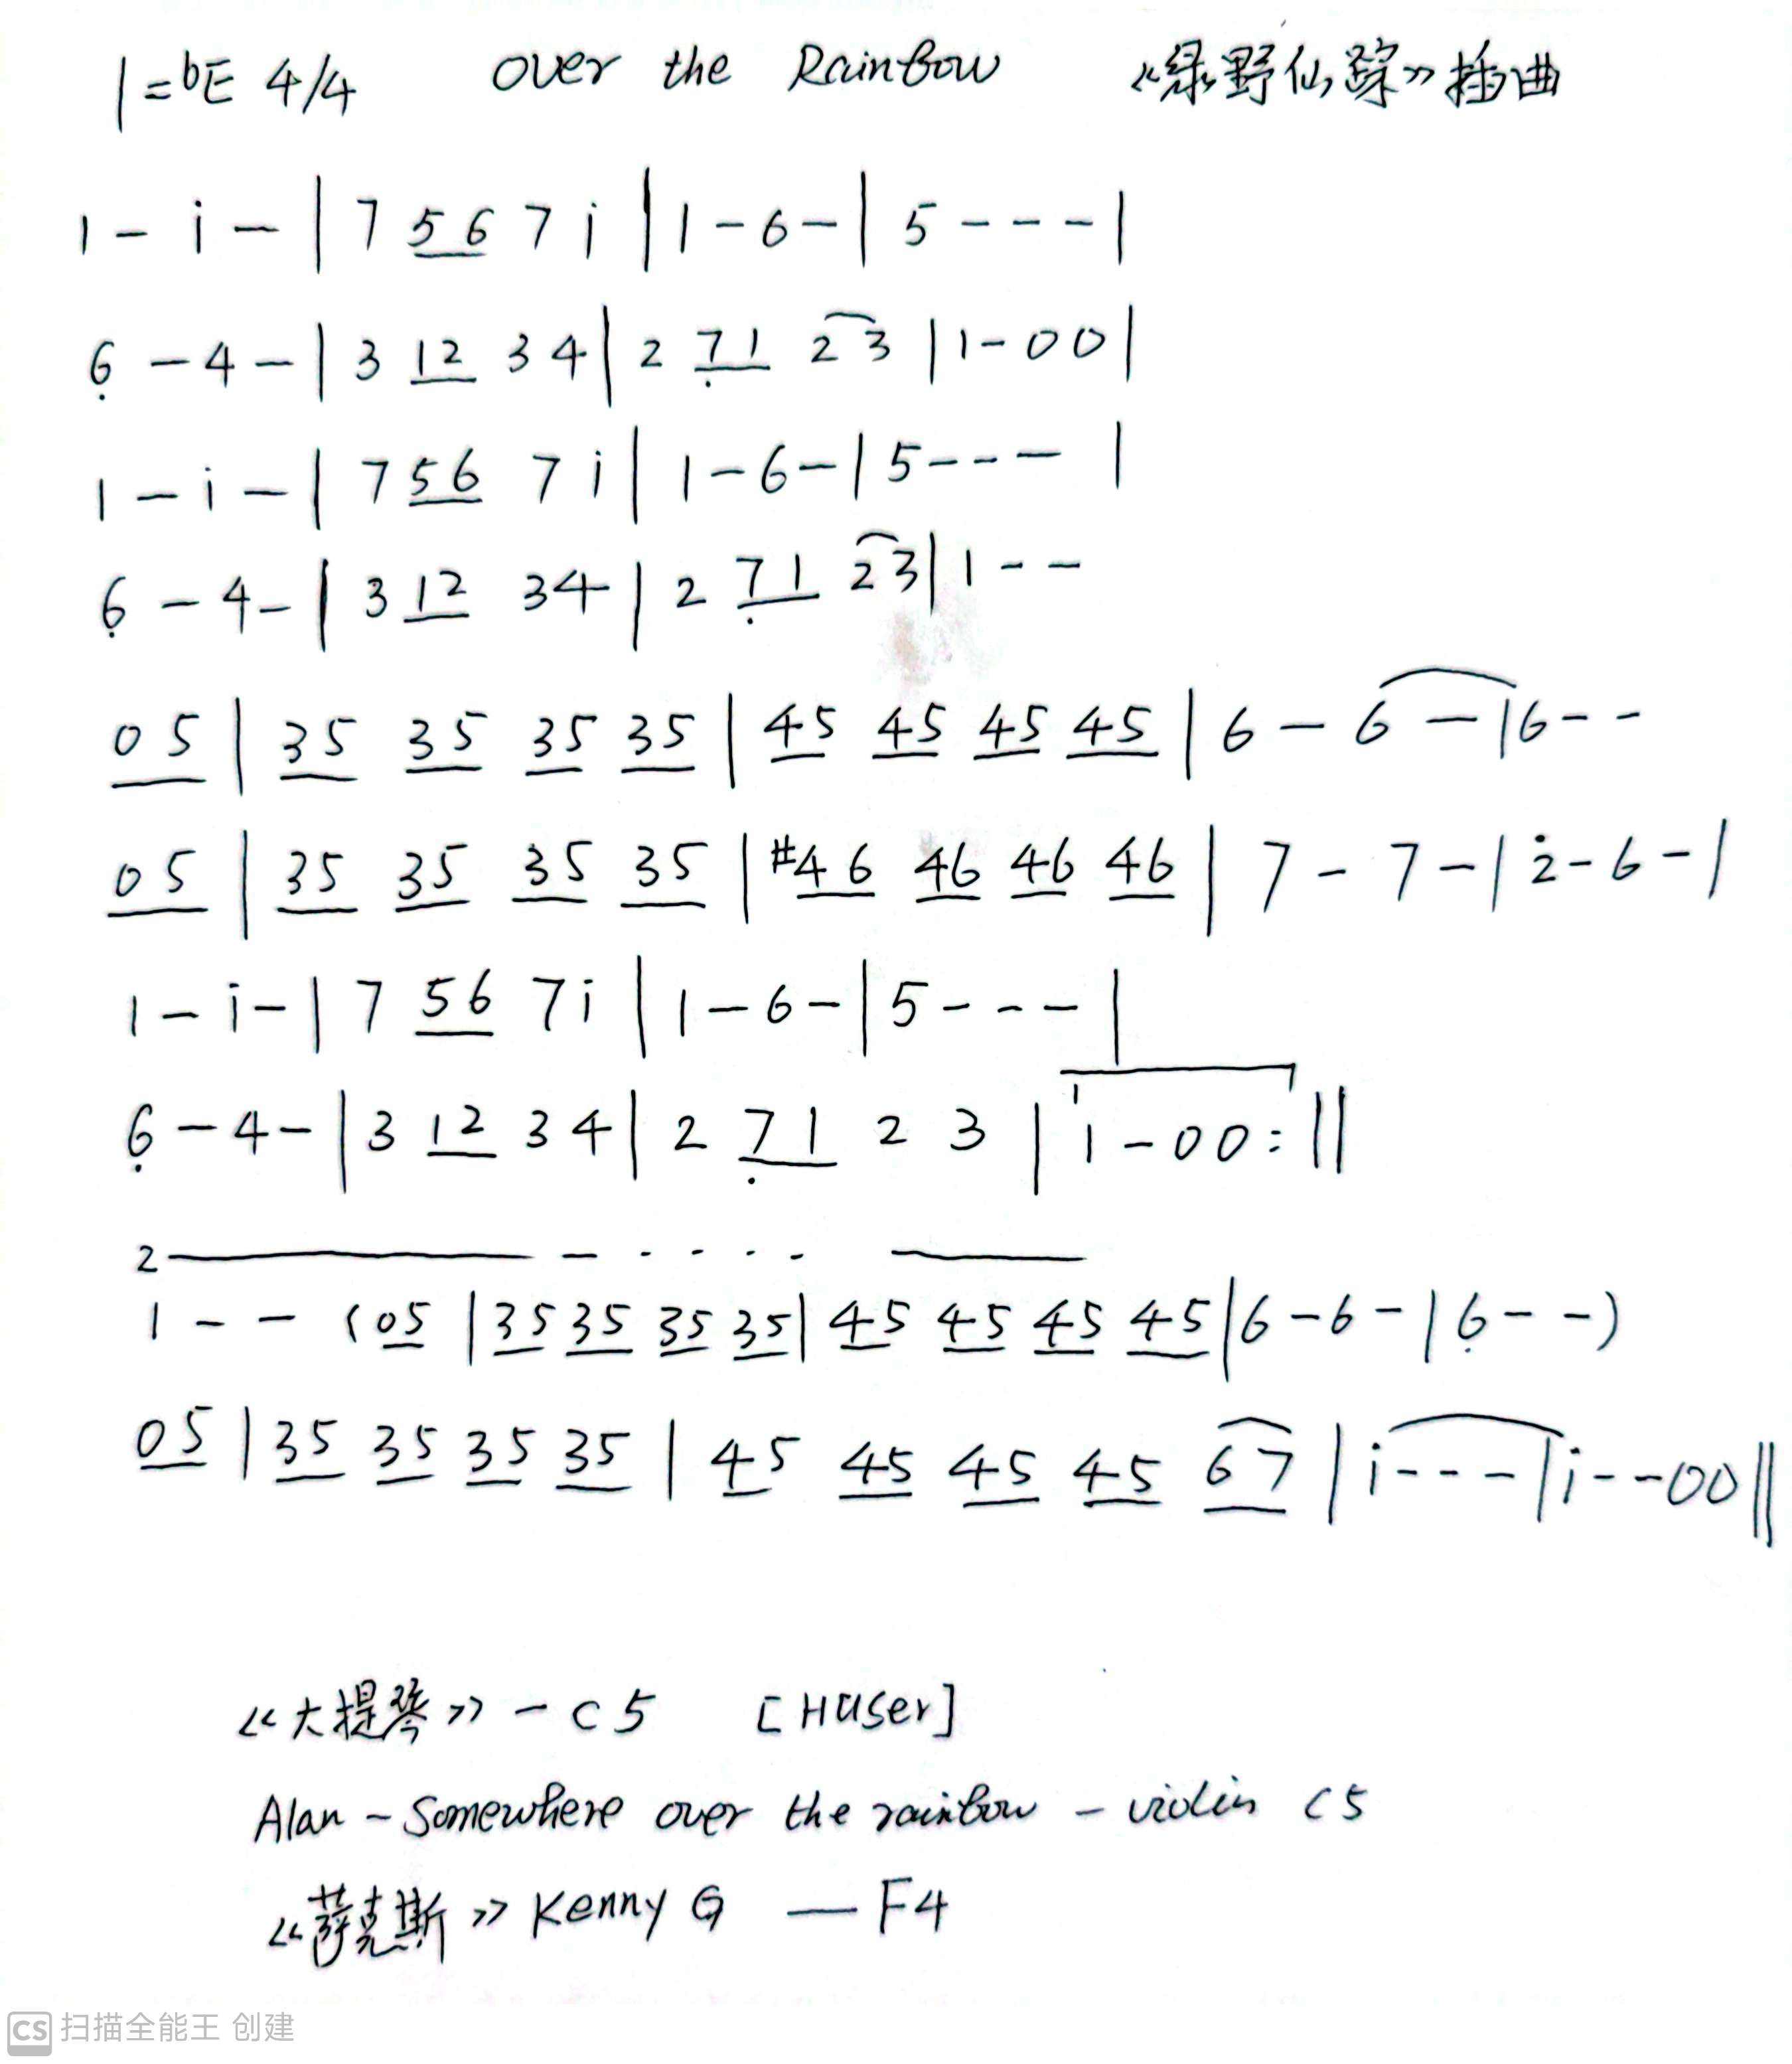 1=bE 4/4 Over the Rainbow 《绿野仙踪》插曲
1 - i - | 7 56 7 i | 1 - 6 - | 5 - - - |
6̣ - 4 - | 3 12 3 4 | 2 7̣1 2 3 | 1 - 0 0 |
1 - i - | 7 56 7 i | 1 - 6 - | 5 - - - |
6̣ - 4 - | 3 12 3 4 | 2 7̣1 2 3 | 1 - -
05 | 35 35 35 35 | 45 45 45 45 | 6 - 6 - | 6 - -
05 | 35 35 35 35 | #46 46 46 46 | 7 - 7 - | 2̇ - 6 - |
1 - i - | 7 56 7 i | 1 - 6 - | 5 - - - |
6̣ - 4 - | 3 12 3 4 | 2 7̣1 2 3 | 1 - 0 0 :||
2
1 - - (05 | 35 35 35 35 | 45 45 45 45 | 6 - 6 - | 6̣ - -)
05 | 35 35 35 35 | 45 45 45 45 67 | i - - - | i - - 0 0 ||
《大提琴》 - C5 [Hauser]
Alan - Somewhere over the rainbow - violin C5
《萨克斯》 Kenny G — F4
CS 扫描全能王 创建